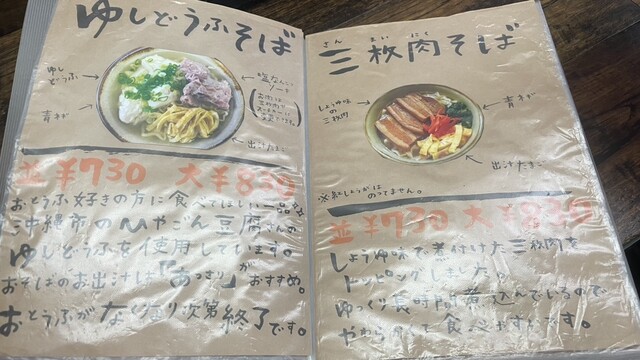 ゆしどうふそば
ゆし
どうふ
青ネギ
塩なんこつ
ソーキ
出汁たまご
並 ¥730 大 ¥830
おとうふ好きの方に食べてほしい一品☆
沖縄市のひやごん豆腐さんの
ゆしどうふを使用しています。
おそばのお出汁は「あっさり」がおすすめ。
おとうふがなくなり次第終了です。
さん まい にく
三枚肉そば
しょうゆ味の
三枚肉
青ネギ
出汁たまご
※紅しょうがは
のってません。
並 ¥730 大 ¥830
しょうゆ味で煮付けた三枚肉を
トッピングしました。
ゆっくり長時間煮込んでいるので
やわらかくて食べやすいです。